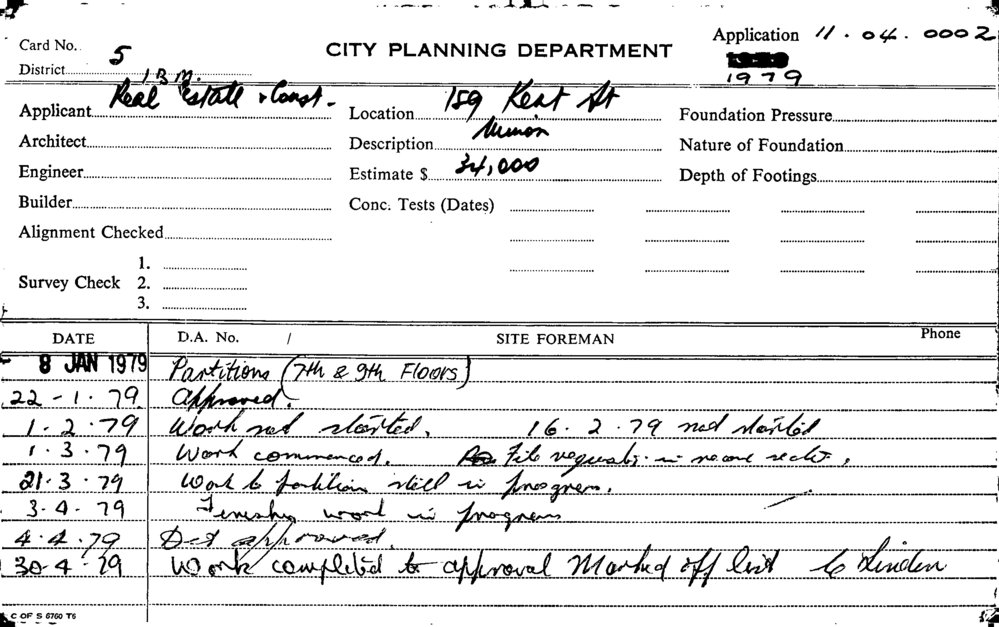 CITY PLANNING DEPARTMENT
Application 11.04.0002
1979
Card No. 5
District
Applicant I B M. Real Estate & Const.
Location 159 Kent St
Foundation Pressure
Architect
Description Minor
Nature of Foundation
Engineer
Estimate $ 34,000
Depth of Footings
Builder
Conc. Tests (Dates)
Alignment Checked
Survey Check 1.
2.
3.
DATE D.A. No. / SITE FOREMAN Phone
8 JAN 1979 Partitions (7th & 9th Floors)
22-1.79 Approved.
1.2.79 Work not started. 16.2.79 not started
1.3.79 Work commenced. File in record
21.3.79 Work to partition still in progress.
3-4-79 work in progress
4.4.79 approved.
30-4-79 Work completed to approval Marked off list Linden
C OF S 6760 T6